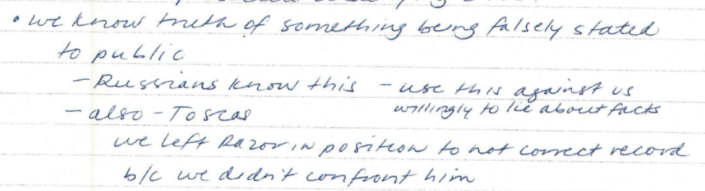 • we know truth of something being falsely stated
to public
- Russians know this - use this against us
willingly to lie about facts
- also - Toscas
we left Razor in position to not correct record
b/c we didn't confront him